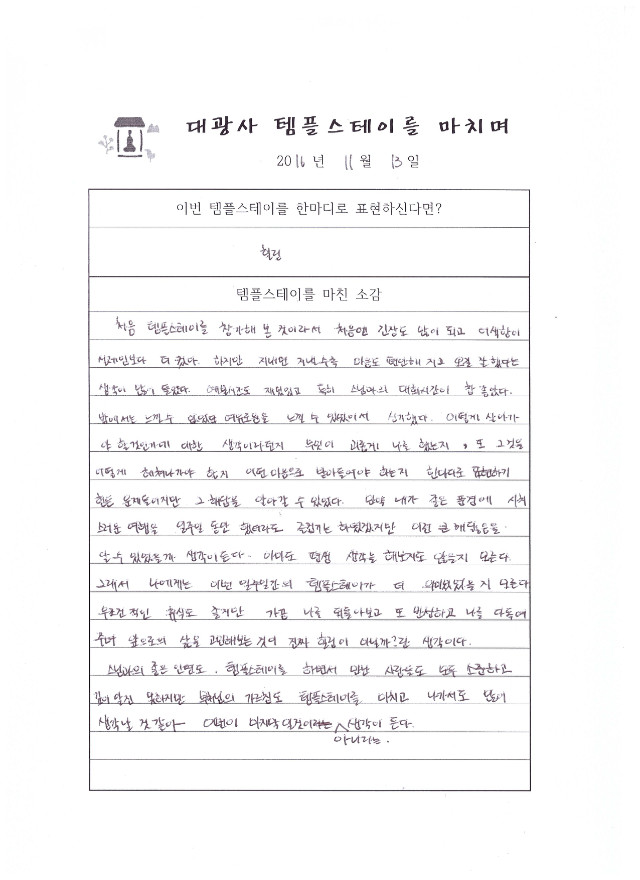 대광사 템플스테이를 마치며
2016년 11월 13일
이번 템플스테이를 한마디로 표현하신다면?
힐링
템플스테이를 마친 소감
처음 템플스테이를 참가해 본 것이라서 처음엔 긴장도 많이 되고 어색함이
더 컸다. 하지만 지내면 지낼수록 마음도 편안해 지고 오길 잘 했다는
생각이 많이 들었다. 예불시간도 재밌었고 특히 스님과의 대화시간이 참 좋았다.
밖에서는 느낄 수 없었던 여유로움을 느낄 수 있었어서 신기했다. 어떻게 살아가
야 할것인가에 대한 생각이라던지 무엇이 괴롭게 나를 했는지, 또 그것을
어떻게 헤쳐나가야 할지 어떤 마음으로 받아들여야 하는지 한마디로 표현하기
힘든 문제들이지만 그 해답을 알아갈 수 있었다. 만약 내가 좋은 풍경에
여행을 일주일 동안 했더라도 즐겁기는 하였겠지만 이런 큰 깨달음을
알 수 있었을까 생각이 든다. 아마도 평생 생각을 해보지도 않을지 모른다.
그래서 나에게는 이번 일주일간의 템플스테이가 더 의미있었을 지 모른다
무조건적인 휴식도 좋지만 가끔 나를 뒤돌아보고 또 반성하고 나를 다독여
주며 앞으로의 삶을 고민해보는 것이 진짜 힐링이 아닐까?란 생각이다.
스님과의 좋은 인연도, 템플스테이를 하면서 만난 사람들도 모두 소중하고
깊이 알진 못하지만 부처님의 가르침도 템플스테이를 마치고 나가서도 많이
생각날 것 같아 인연이 마지막 일것이 아니라는 생각이 든다.